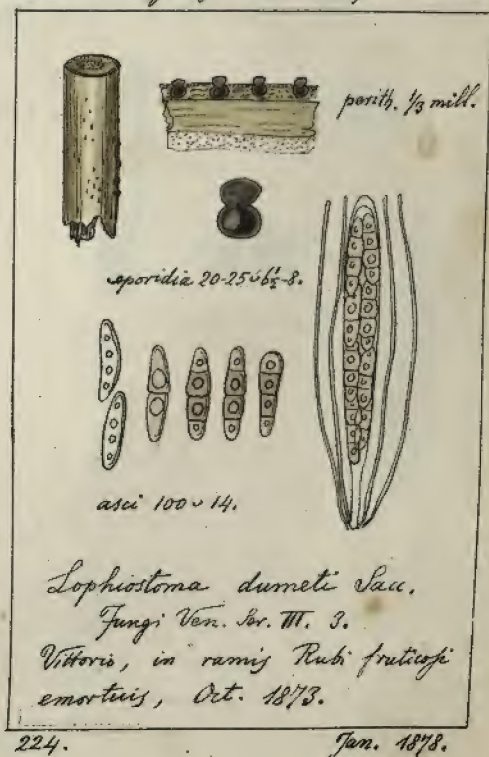 perith. 1/3 mill.
sporidia 20-25 ᴗ 6½-8.
asci 100 ᴗ 14.
Lophiostoma dumeti Sacc.
Fungi Ven. Ser. III. 3.
Vittorio, in ramis Rubi fruticosi
emortuis, Oct. 1873.
224. Jan. 1878.